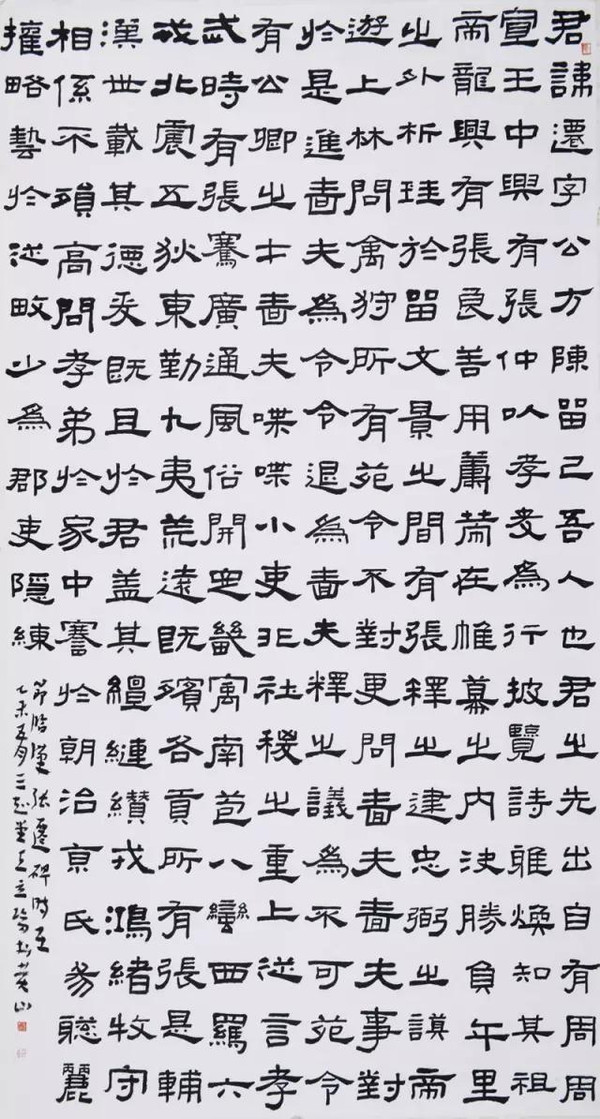 君諱遷字公方陳留己吾人也君之先出自有周周
宣王中興有張仲以孝友為行披覽詩雅煥知其祖
帝龍興有張良善用籌策在帷幕之內決勝負千里
之外析珪於留文景之間有張釋之建忠弼之謨帝
遊上林問禽狩所有苑令不對更問嗇夫嗇夫事對
於是進嗇夫為令令退為嗇夫釋之議為不可苑令
有公卿之才嗇夫喋喋小吏非社稷之重上從言孝
武時有張騫廣通風俗開定畿寓南苞八蠻西羈六
戎北震五狄東勤九夷荒遠既殯各貢所有張是輔
漢世載其德爰既且於君蓋其繵縺纘戎鴻緒牧守
相係不殞高問孝弟於家中謇於朝治京氏易聰麗
權略藝於從畋少為郡吏隱練
節臨漢張遷碑時在
乙未五月王立於黃山